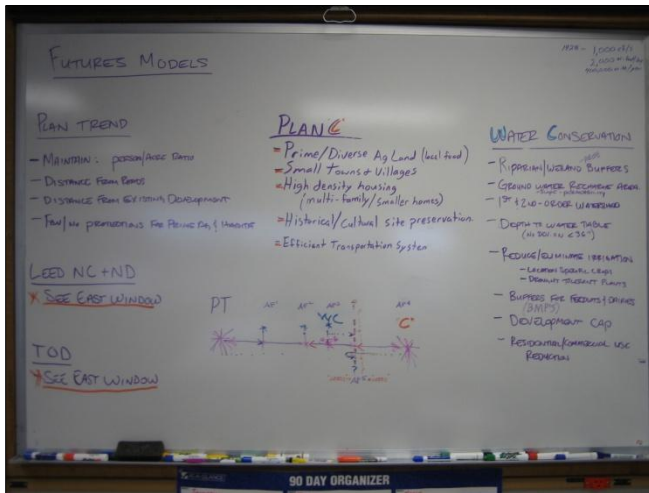 FUTURES MODELS
PLAN TREND
- MAINTAIN: PERSON/ACRE RATIO
- DISTANCE FROM ROADS
- DISTANCE FROM EXISTING DEVELOPMENT
- FEW/NO PROTECTIONS FOR
LEED NC + ND
* SEE EAST WINDOW
TOD
* SEE EAST WINDOW
PLAN C
= Prime/Diverse Ag Land (local food)
= Small Towns + Villages
= High density housing
(multi-family/smaller homes)
= Historical/Cultural site preservation
= Efficient Transportation System
PT
WC
"C"
1,000
2,000
WATER CONSERVATION
- RIPARIAN/WETLAND BUFFERS
- GROUND WATER RECHARGE AREA
- 1ST + 2ND-ORDER WATERSHED
- DEPTH TO WATER TABLE
- REDUCE/ELIMINATE IRRIGATION
- LOCATION SPECIFIC CROPS
- DROUGHT TOLERANT PLANTS
- BUFFERS FOR FEEDLOTS/DAIRIES
(BMPS)
- DEVELOPMENT CAP
- RESIDENTIAL/COMMERCIAL USE
REDUCTION
90 DAY ORGANIZER